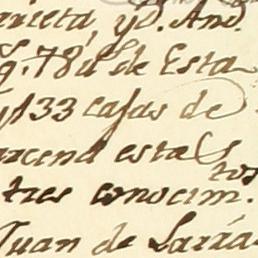 rrieta, y d. And.
g. 78 d de Esta
y 133 casas de
arcena estas
tres conocim.tos
Juan de Larráa